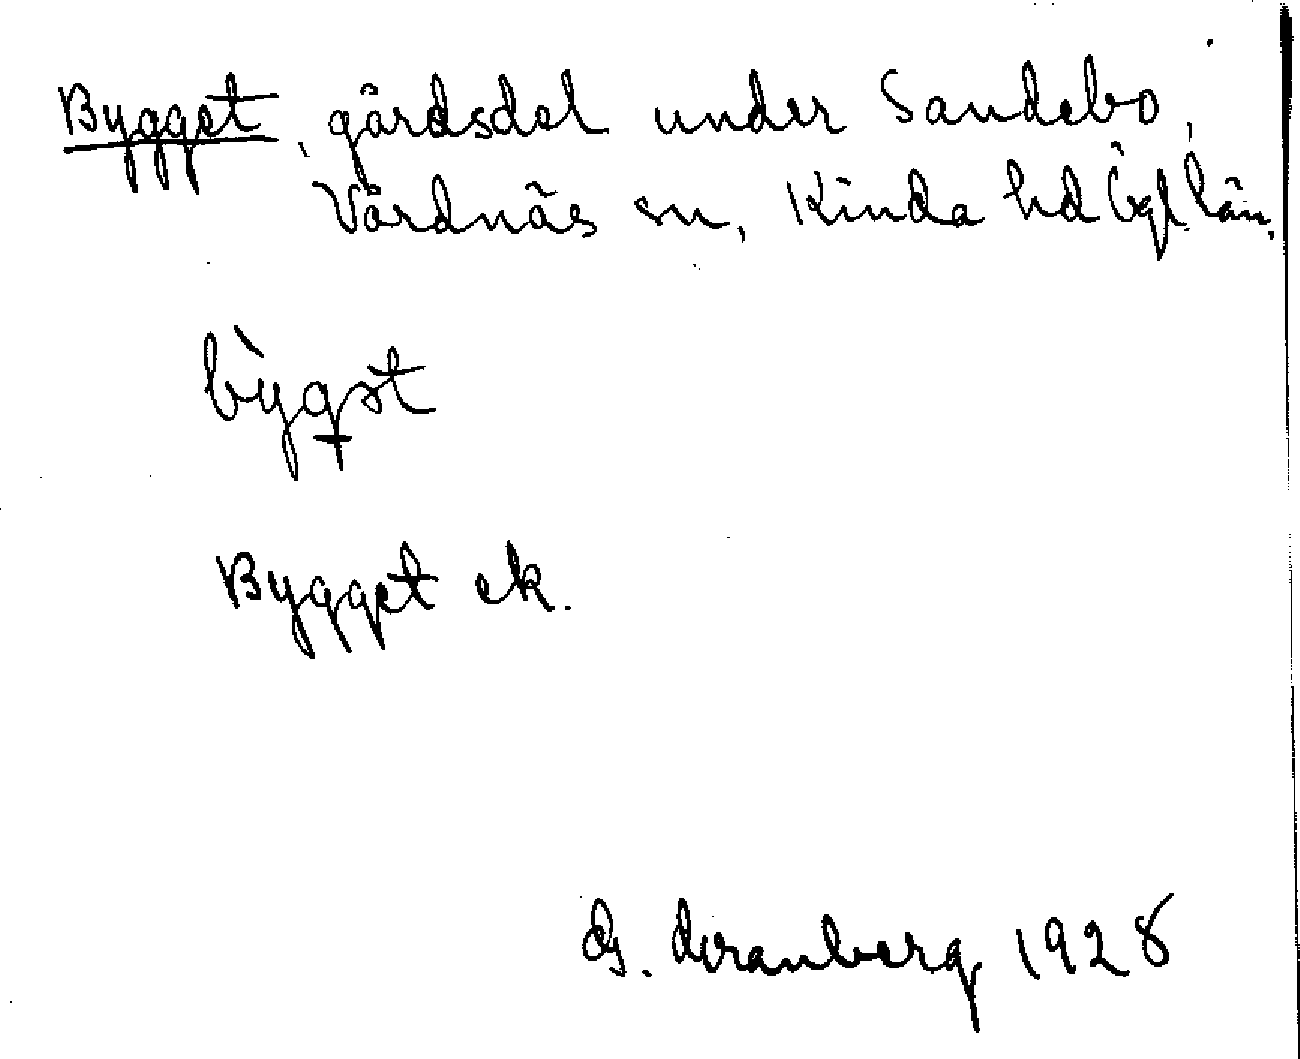 Bygget, gårdsdel under Sandebo,
Vårdnäs sn, Kinda hd Ögl län.
bỳgət
Bygget ek.
G. Franberg 1928